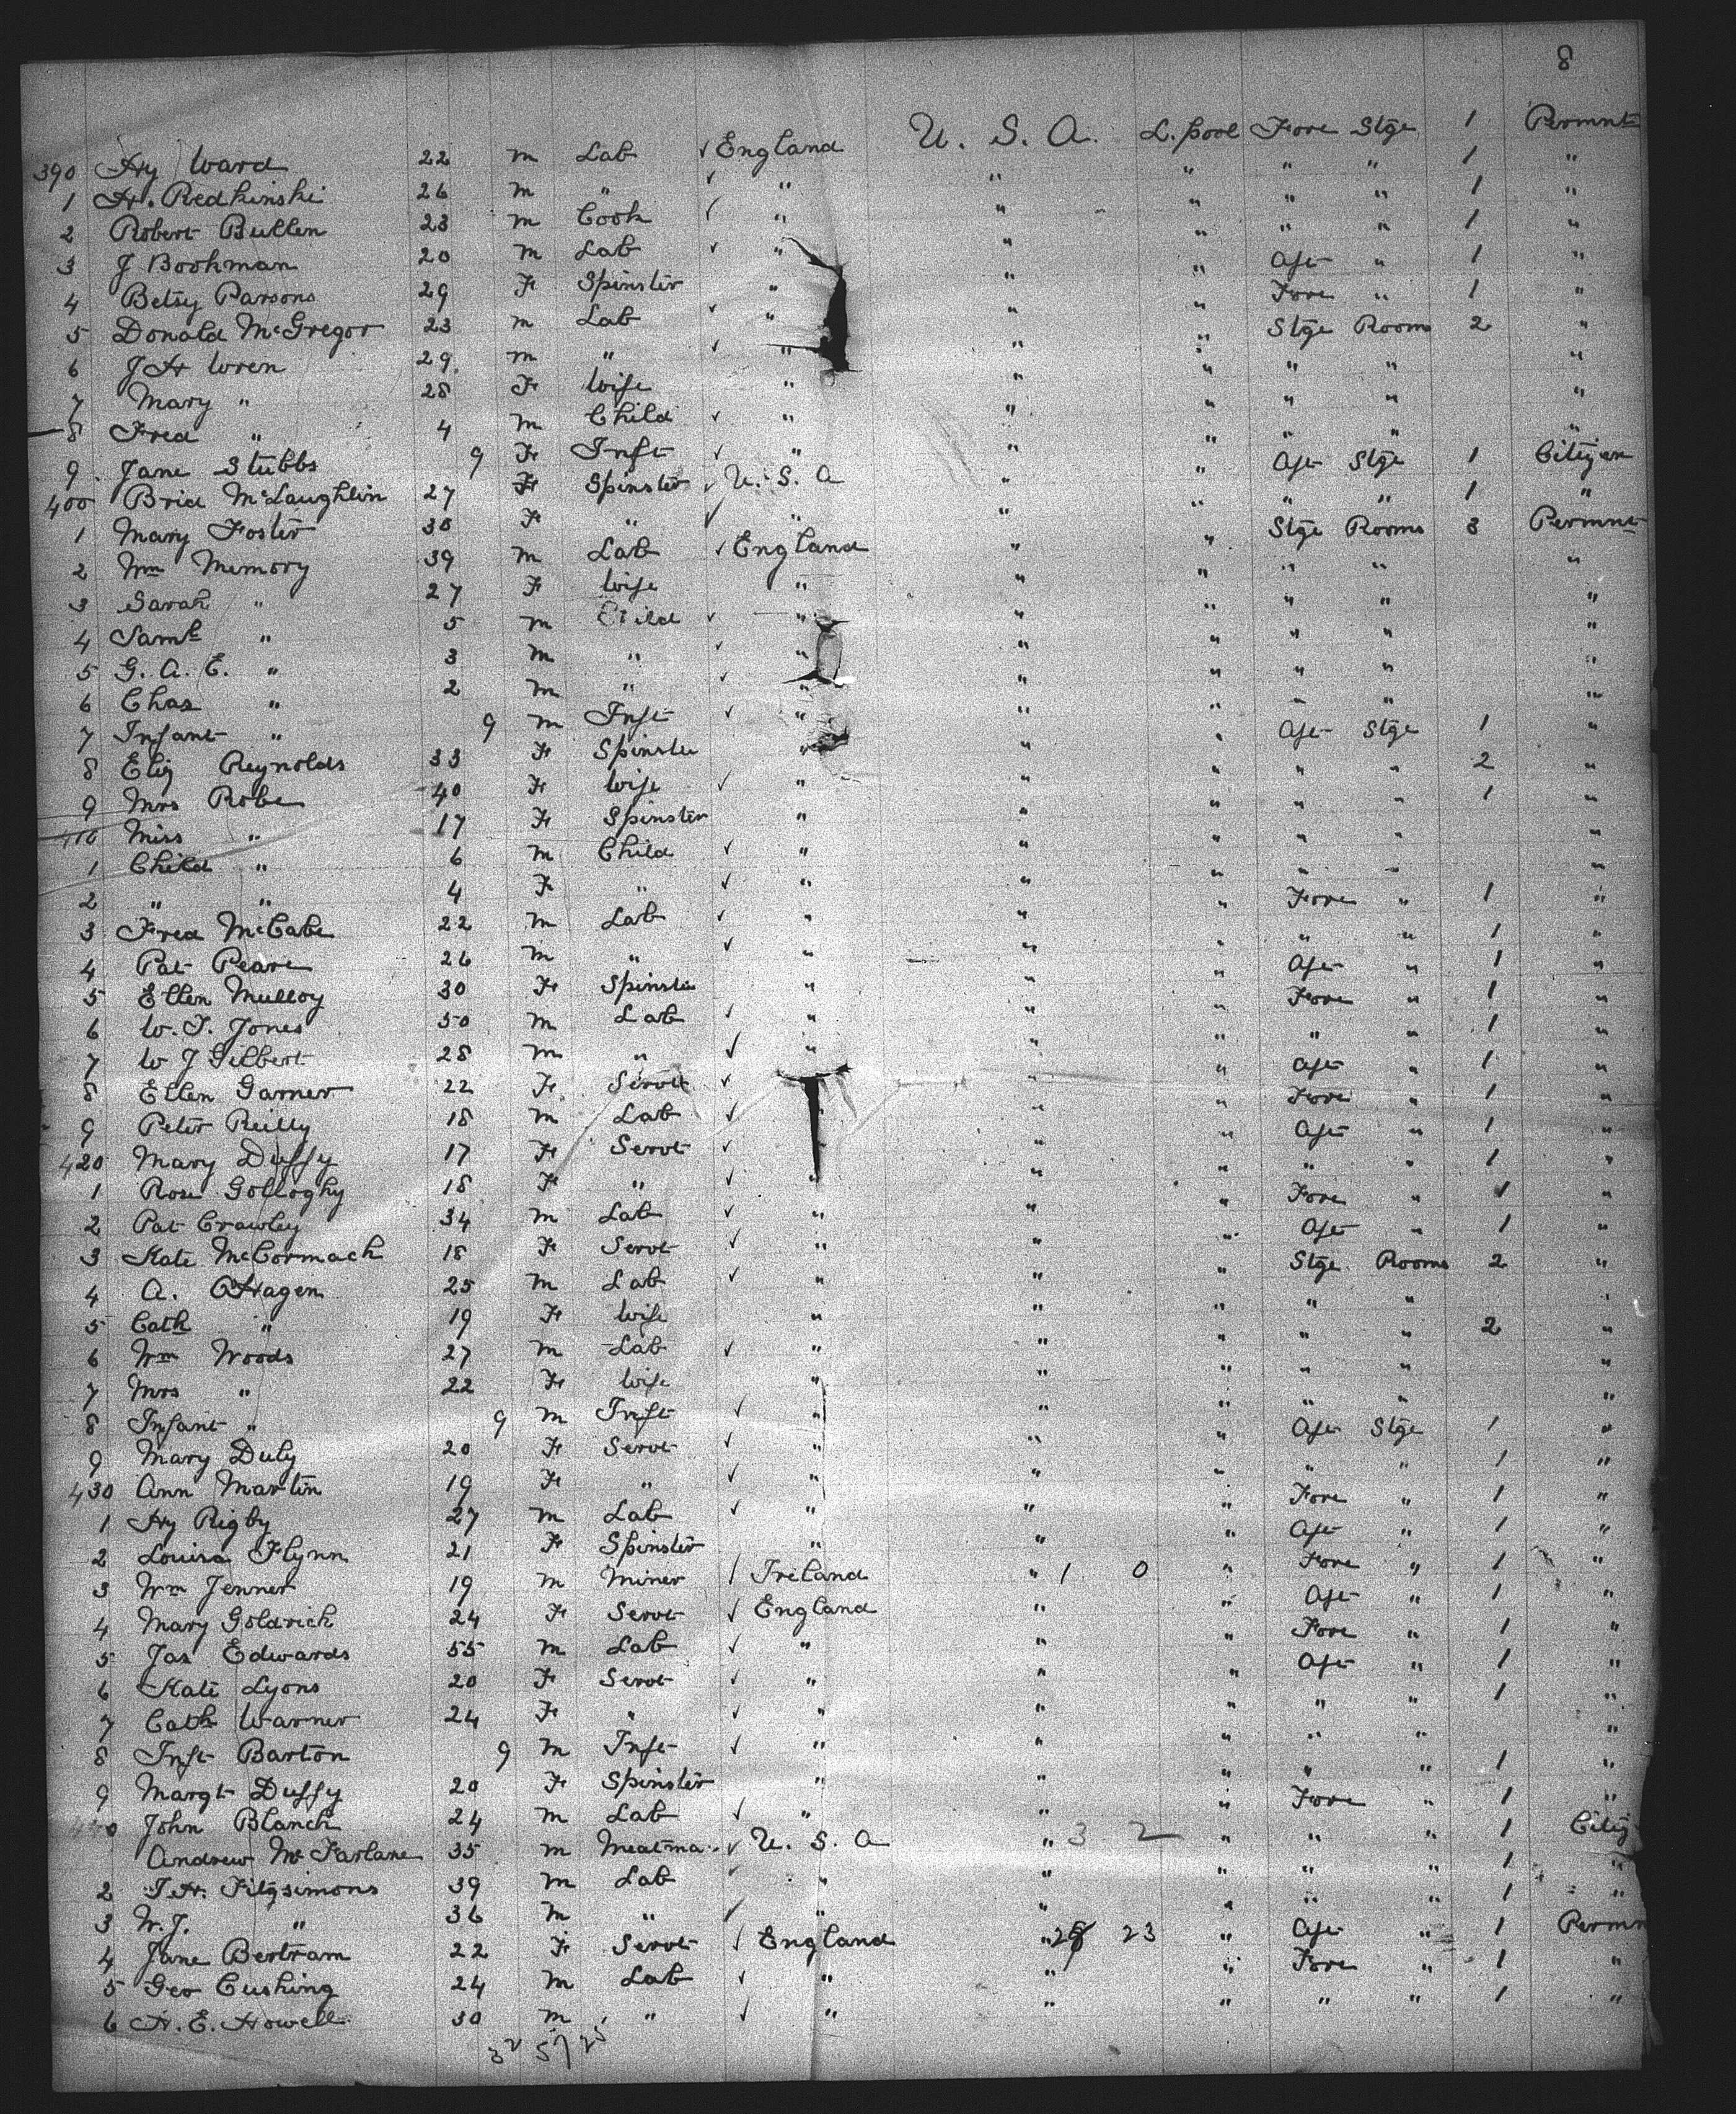 8
390 Hy Ward 22 m Lab ✓ England U. S. A. L.pool Fore Stge 1 Permnt
1 H. Redhinshi 26 m " ✓ " " " " " 1 "
2 Robert Bullen 23 m Cook ✓ " " " " " 1 "
3 J Boohman 20 m Lab ✓ " " " " " 1 "
4 Betsy Parsons 29 F Spinster " " " Aft " 1 "
5 Donald McGregor 23 m Lab ✓ " " " Fore " 1 "
6 J H Wren 29 m " ✓ " " " Stge Room 2 "
7 Mary " 28 F Wife " " " " " "
8 Fred " 4 m Child ✓ " " " " " "
9 Jane Stubbs 9 F Inft ✓ " " " " " "
400 Brid McLaughlin 27 F Spinster ✓ U. S. A " " Aft Stge 1 Citizen
1 Mary Foster 30 F " ✓ " " " " " 1 "
2 Wm Memory 39 m Lab ✓ England " " Stge Rooms 3 Permnt
3 Sarah " 27 F Wife " " " " " "
4 Saml " 5 m Child ✓ " " " " " "
5 G. A. E. " 3 m " ✓ " " " " " "
6 Chas " 2 m " ✓ " " " " " "
7 Infant " 9 m Inft ✓ " " " " " "
8 Eliz Reynolds 33 F Spinster " " " Aft Stge 1 "
9 Mrs Robe 40 F Wife ✓ " " " " " 2 "
410 Miss " 17 F Spinster " " " " " 1 "
1 Child " 6 m Child ✓ " " " " " "
2 " " 4 F " ✓ " " " " " "
3 Fred McCabe 22 m Lab ✓ " " " Fore " 1 "
4 Pat Peare 26 m " ✓ " " " " " 1 "
5 Ellen Mulloy 30 F Spinster " " " Aft " 1 "
6 W. T. Jones 50 m Lab ✓ " " " Fore " 1 "
7 W J Gilbert 28 m " ✓ " " " " " 1 "
8 Ellen Garner 22 F Servt ✓ " " " Aft " 1 "
9 Peter Reilly 18 m Lab ✓ " " " Fore " 1 "
420 Mary Duffy 17 F Servt ✓ " " " Aft " 1 "
1 Rose Golloghy 18 F " ✓ " " " " " 1 "
2 Pat Crawley 34 m Lab ✓ " " " Fore " 1 "
3 Kate McCormach 18 F Servt ✓ " " " Aft " 1 "
4 A. OHagen 25 m Lab ✓ " " " Stge Rooms 2 "
5 Cath " 19 F Wife " " " " " "
6 Wm Woods 27 m Lab ✓ " " " " " 2 "
7 Mrs " 22 F Wife " " " " " "
8 Infant " 9 m Inft ✓ " " " " " "
9 Mary Duly 20 F Servt ✓ " " " Aft Stge 1 "
430 Ann Martin 19 F " ✓ " " " " " 1 "
1 Hy Rigby 27 m Lab ✓ " " " Fore " 1 "
2 Louisa Flynn 21 F Spinster " " " Aft " 1 "
3 Wm Jenner 19 m Miner ✓ Ireland " 1 0 " Fore " 1 "
4 Mary Goldrich 24 F Servt ✓ England " " Aft " 1 "
5 Jas Edwards 55 m Lab ✓ " " " Fore " 1 "
6 Kate Lyons 20 F Servt ✓ " " " Aft " 1 "
7 Cath Warner 24 F " ✓ " " " " " 1 "
8 Inft Barton 9 m Inft ✓ " " " " " "
9 Margt Duffy 20 F Spinster " " " " " 1 "
440 John Blanch 24 m Lab ✓ " " " Fore " 1 "
Andrew McFarlane 35 m Meatma ✓ U. S. A " 3 2 " " " 1 Citiz
2 T. H. Fitzsimons 39 m Lab ✓ " " " " " 1 "
3 W. J. " 36 m " ✓ " " " " " 1 "
4 Jane Bertram 22 F Servt ✓ England " 23 " Aft " 1 Permn
5 Geo Cushing 24 m Lab ✓ " " " Fore " 1 "
6 H. E. Howell 30 m " ✓ " " " " " 1 "
32 57 25